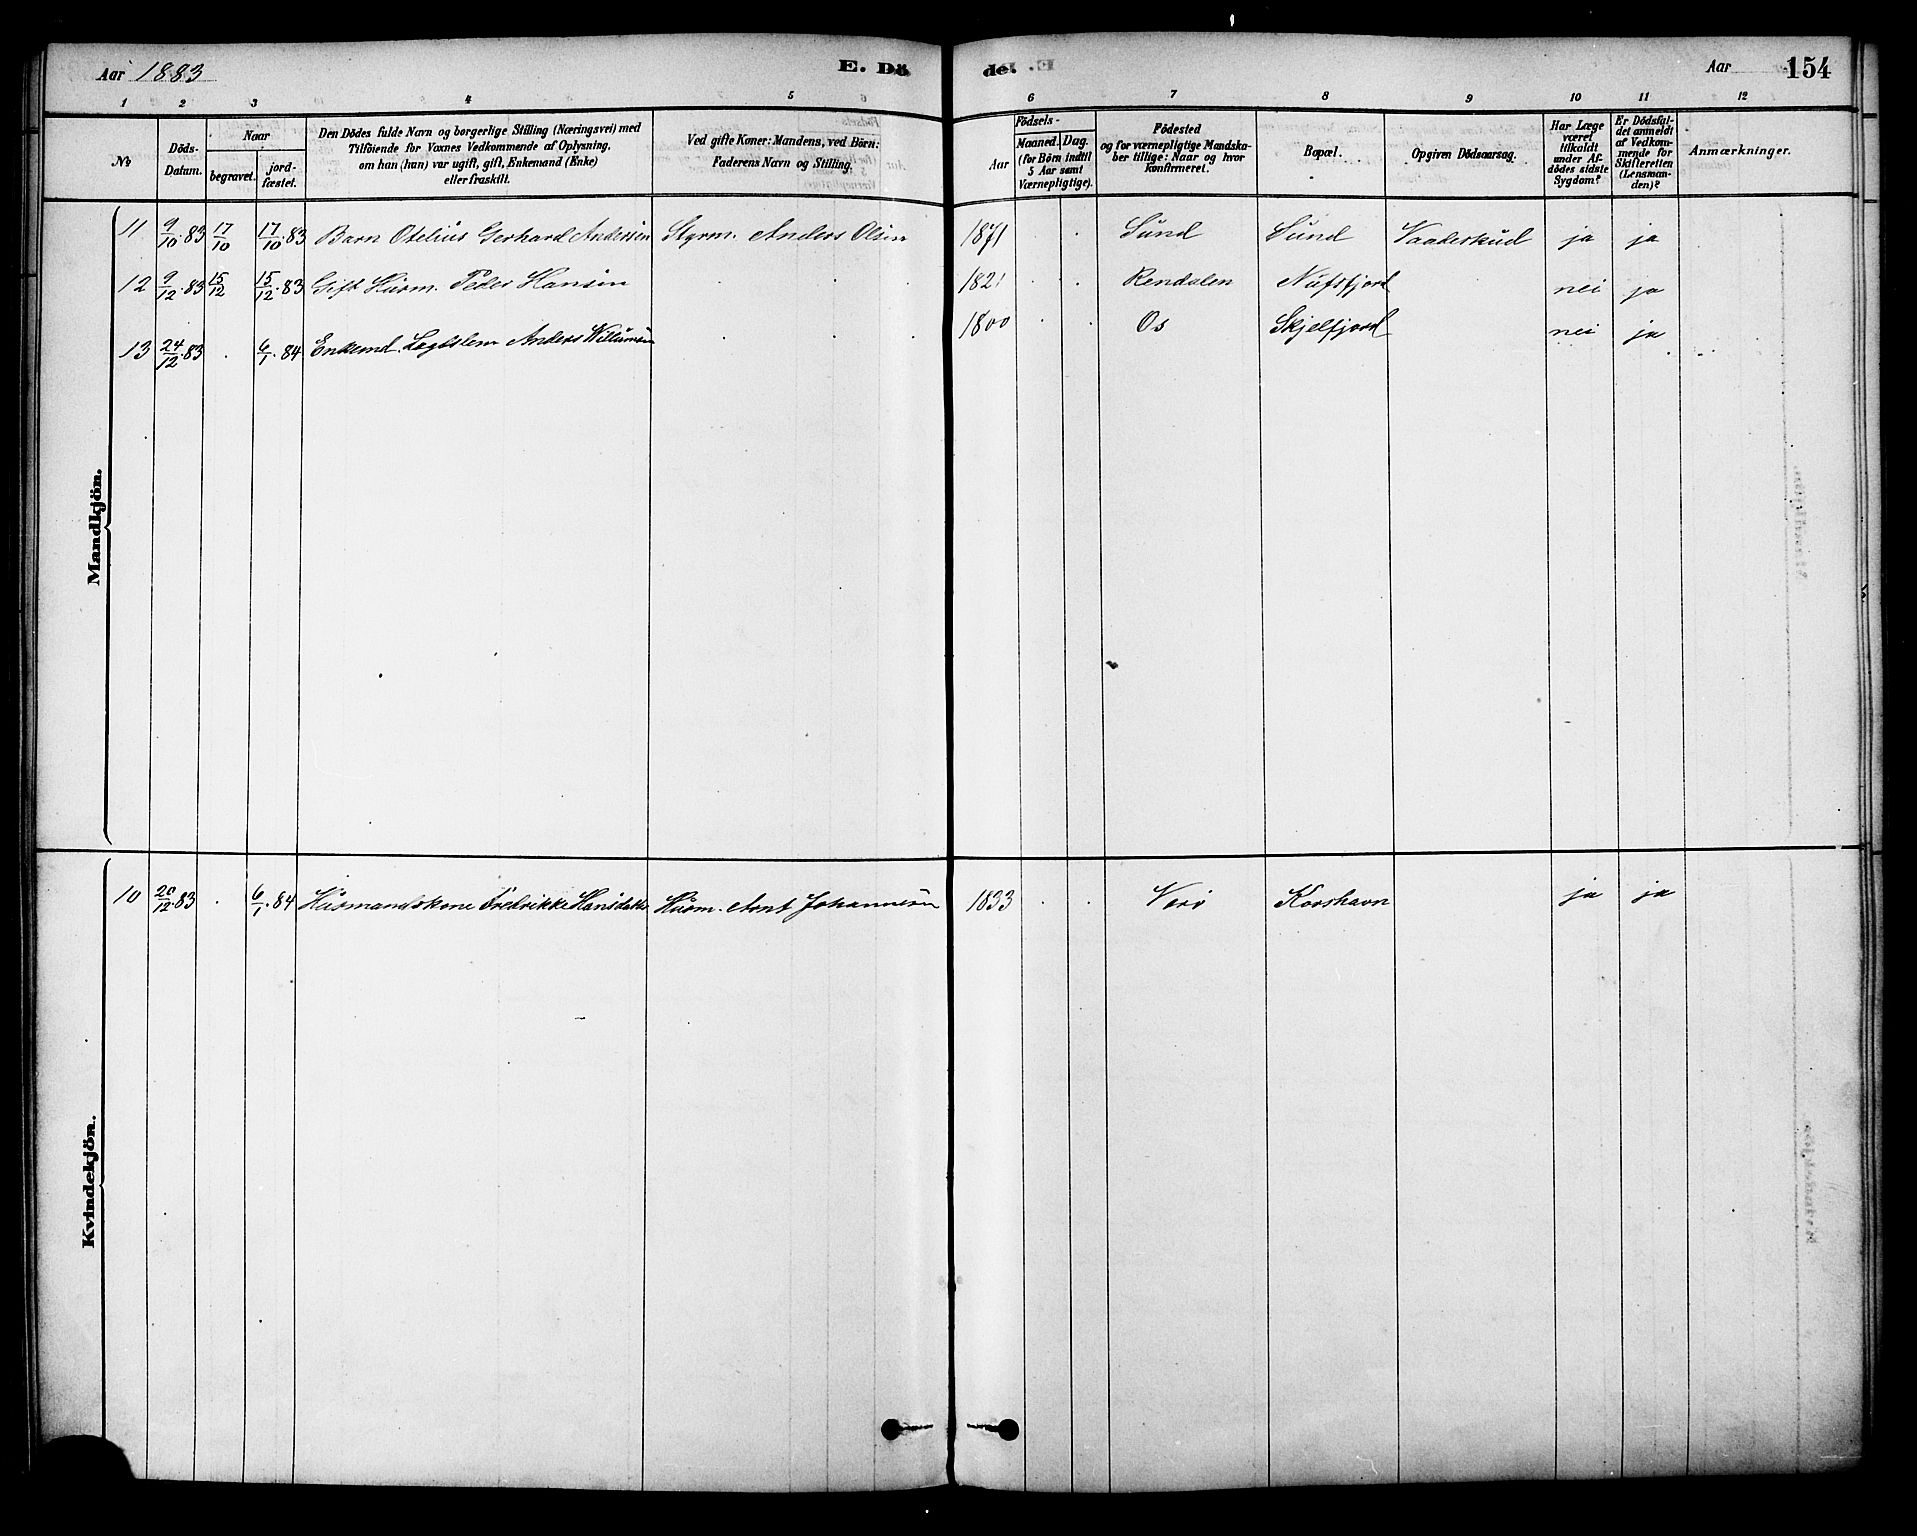 Aar 1883 E. Dö de. Aar 154
1 2 3 4 5 6 7 8 9 10 11 12
No
Döds-Datum.
Naar
begravet.
jord-fæstet.
Den Dödes fulde Navn og borgerlige Stilling (Næringsvei) med
Tilföiende for Voxnes Vedkommende af Oplysning,
om han (hun) var ugift, gift, Enkemand (Enke)
eller fraskilt.
Ved gifte Koner: Mandens, ved Börn:
Faderens Navn og Stilling.
Födsels-
Aar
Maaned. Dag.
(for Börn indtil
5 Aar samt
Værnepligtige).
Födested
og for værnepligtige Mandska-
ber tillige: Naar og hvor
konfirmeret.
Bopæl.
Opgiven Dödsaarsag.
Har Læge
været
tilkaldt
under Af-
dödes sidste
Sygdom?
Er Dödsfal-
det anmeldt
af Vedkom-
mende for
Skifteretten
(Lensman-
den)?
Anmærkninger.
Mandkjön.
11 9/10.83 17/10 17/10.83 Barn Otelius Gerhard Andersen Styrm. Anders Olsen 1871 Sund Sund Vaadeskud ja ja
12 9/12.83 15/12 15/12.83 Gift Husm. Peder Hansen 1821 Rendalen Nufsfjord nei ja
13 24/12.83 6/1.84 Enkemd. Lægdslem Anders Willumsen 1800 Os Skjelfjord nei ja
Kvindekjön.
10 20/12.83 6/1.84 Husmandskone Fredrikke Hansdatter Husm. Arnt Johannesen 1833 Verö Korshavn ja ja